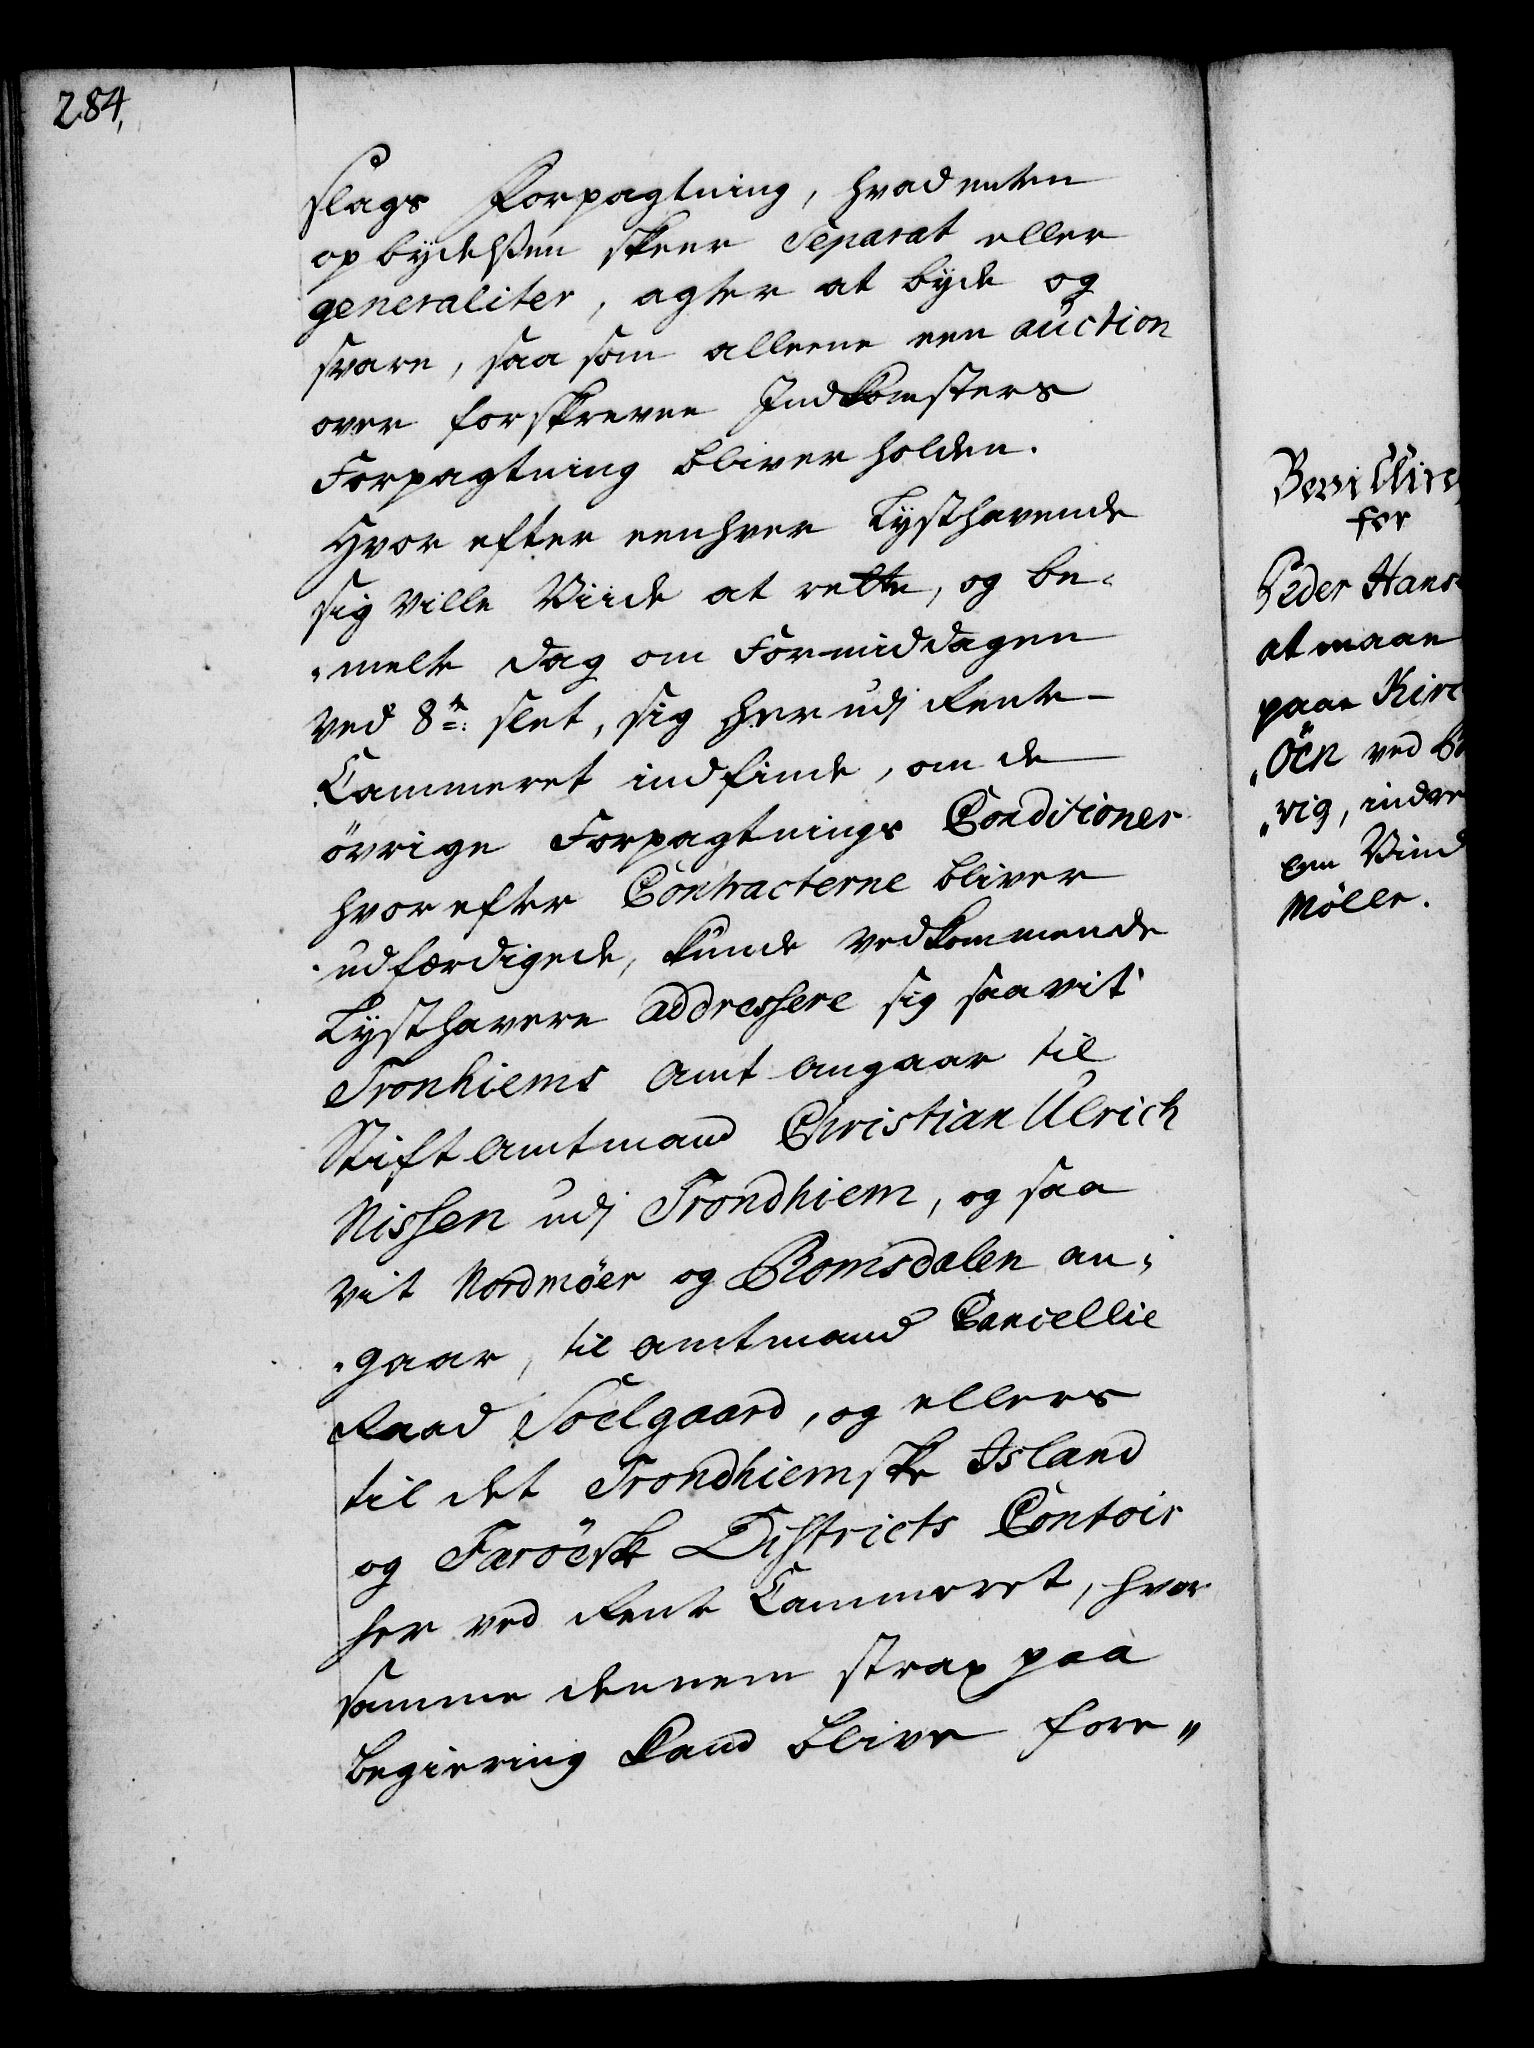 284,
slags Forpagtning, hvad enten
op bydelsen skeer Separat eller
generaliter, agter at byde og
svare, saa som alleene een auction
over forskrevne Indkomsters
Forpagtning bliver holden.
Hvor efter eenhver Lysthavende
sig ville Viide at rette, og be-
melte dag om Formiddagen
ved 8te slet, sig her udj Rente
Cammeret indfinde, om de
övrige Forpagtnings Conditioner
hvor efter Contracterne bliver
udfærdigede, kunde vedkommende
Lysthavere addressere sig saavit
Tronhiems Amt angaar til
Stift Amtmand Christian Ulrich
Nissen udj Trondhiem, og saa
vit Nordmöer og Romsdalen an-
gaar, til Amtmand Cancellie
Raad Soelgaard, og ellers
til det Trondhiemske Island
og Færöesk Districts Contoir
her ved Rente Cammeret, hvor
samme dennem strax paa
begiering kand blive fore"
for
Peder Hans
at maae
paae Kirc
"öen ved
"rig, indre
een Vind
Mölle.